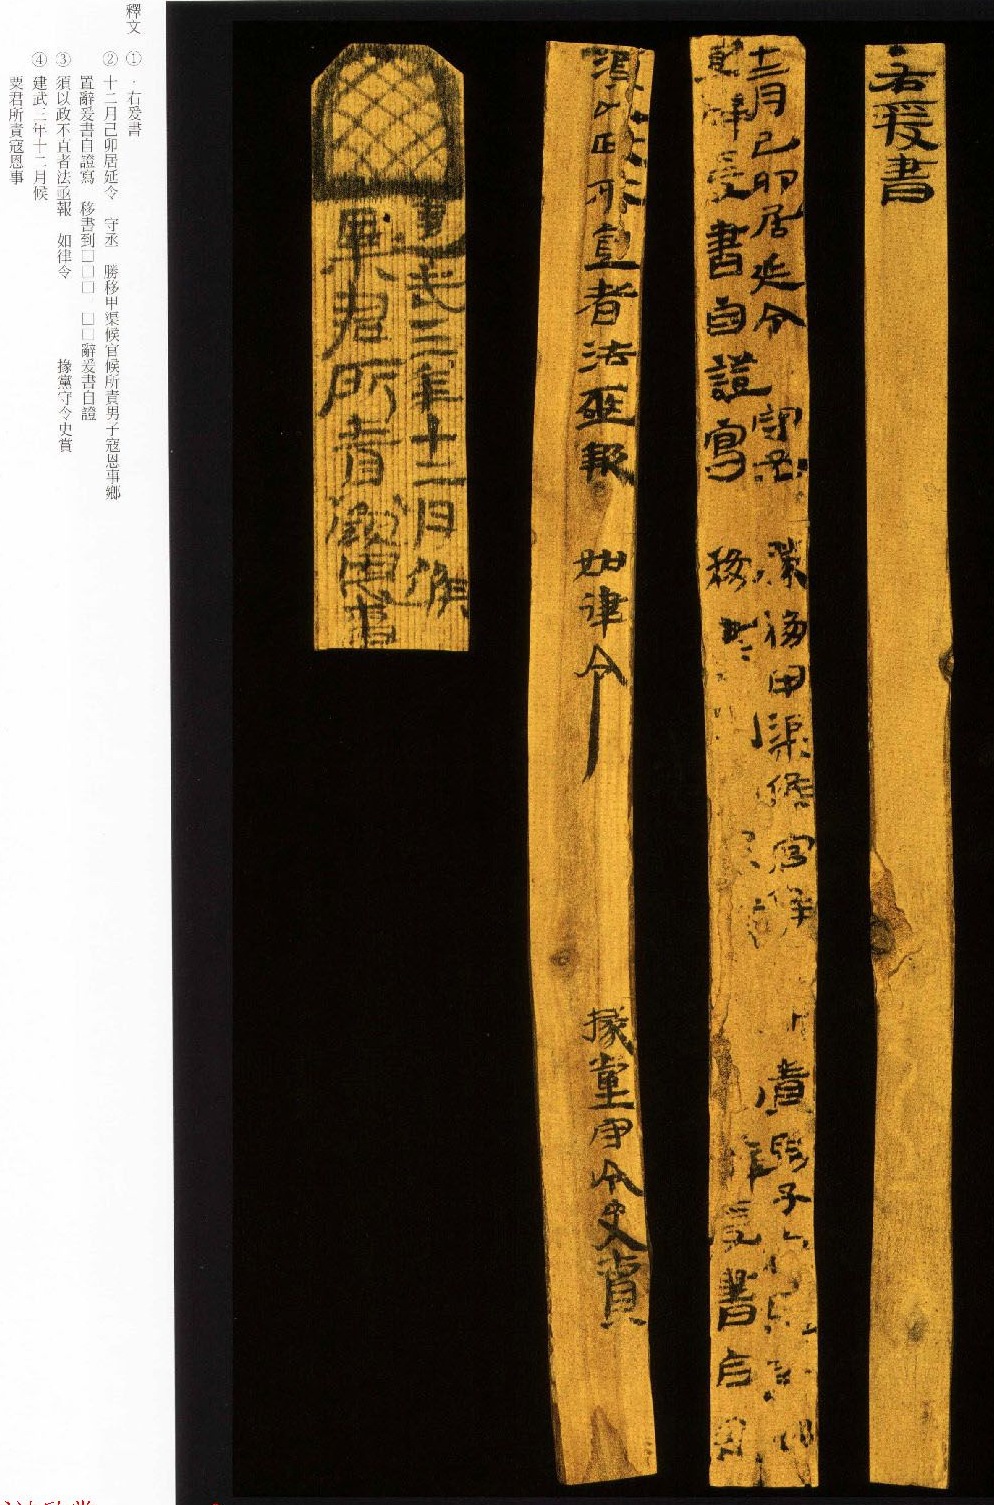 釋文
① ·右爰書
② 十二月己卯居延令 守丞 勝移甲渠候官候所責男子寇恩事鄉
置辭爰書自證寫 移書到□□□ □□辭爰書自證
③ 須以政不直者法亟報 如律令 掾黨守令史賞
④ 建武三年十二月候
粟君所責寇恩事
右爰書
十二月己卯居延令 守丞 勝移甲渠候官候 責男子
置辭爰書自證寫 移 辭爰書自證
須以政不直者法亟報 如律令 掾黨守令史賞
建武三年十二月候
粟君所責寇恩事